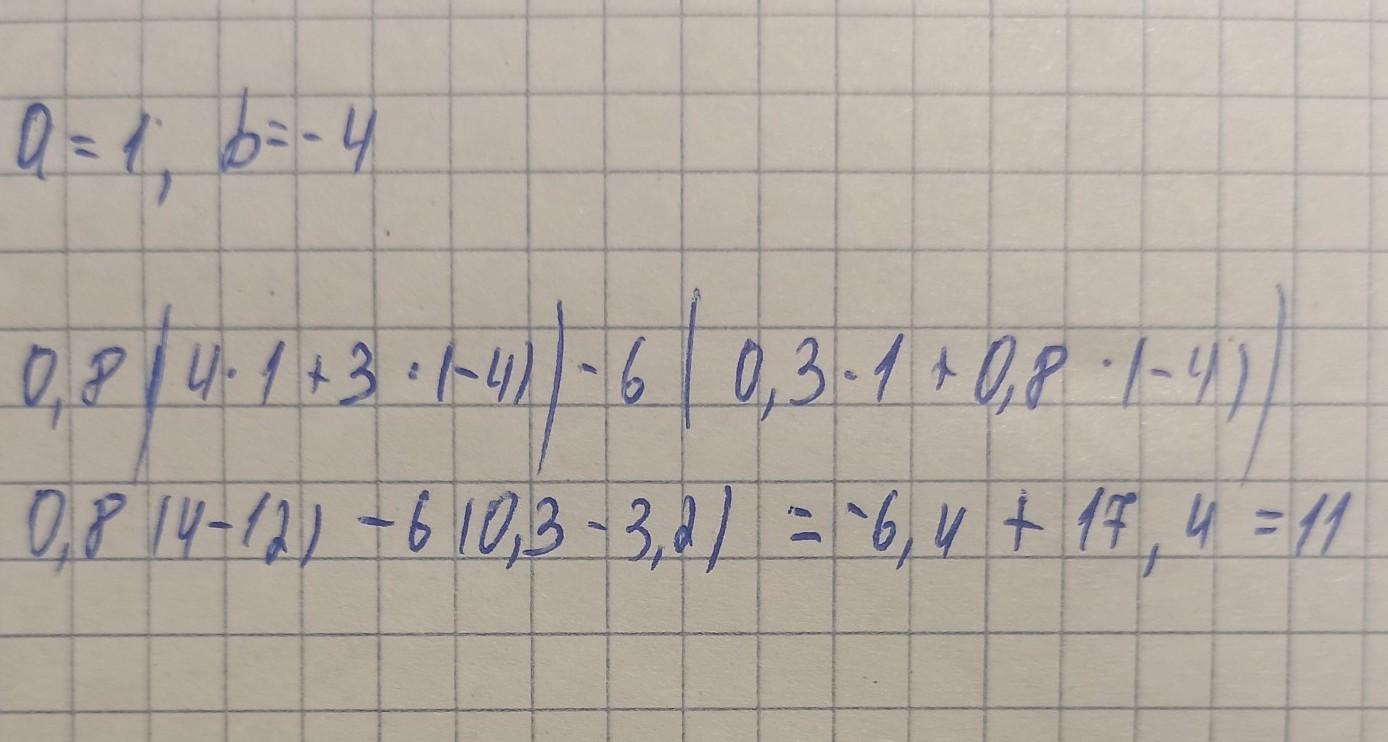 a = 1, b = - 4
0,8 (4 · 1 + 3 · (-4)) - 6 (0,3 · 1 + 0,8 · (-4))
0,8 (4 - 12) - 6 (0,3 - 3,2) = -6,4 + 17,4 = 11